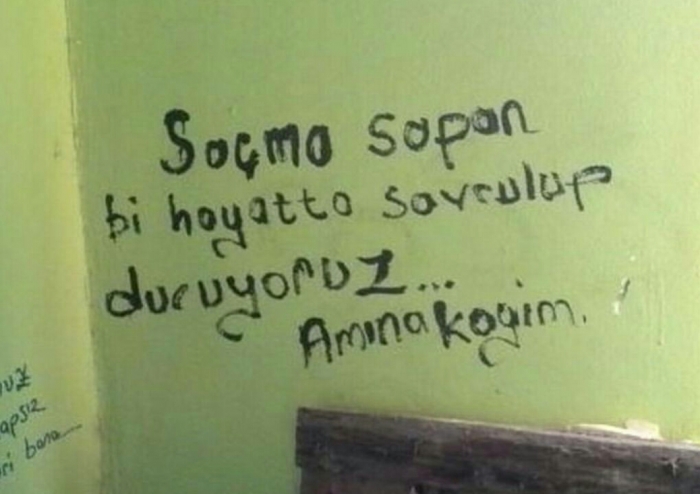 Saçma sapan
bi hayatta savrulup
duruyoruz...
Amınakogim.
apsız
bana...